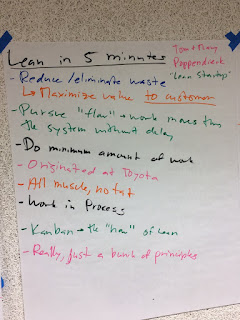 Lean in 5 minutes
Tom + Mary
Poppendieck
"Lean Startup"
- Reduce/eliminate waste
↳ Maximize value to customer
- Pursue "flow" → work moves thru
the system without delay
- Do minimum amount of work
- Originated at Toyota
- All muscle, no fat
- Work in Process
- Kanban → the "how" of Lean
- Really, just a bunch of principles